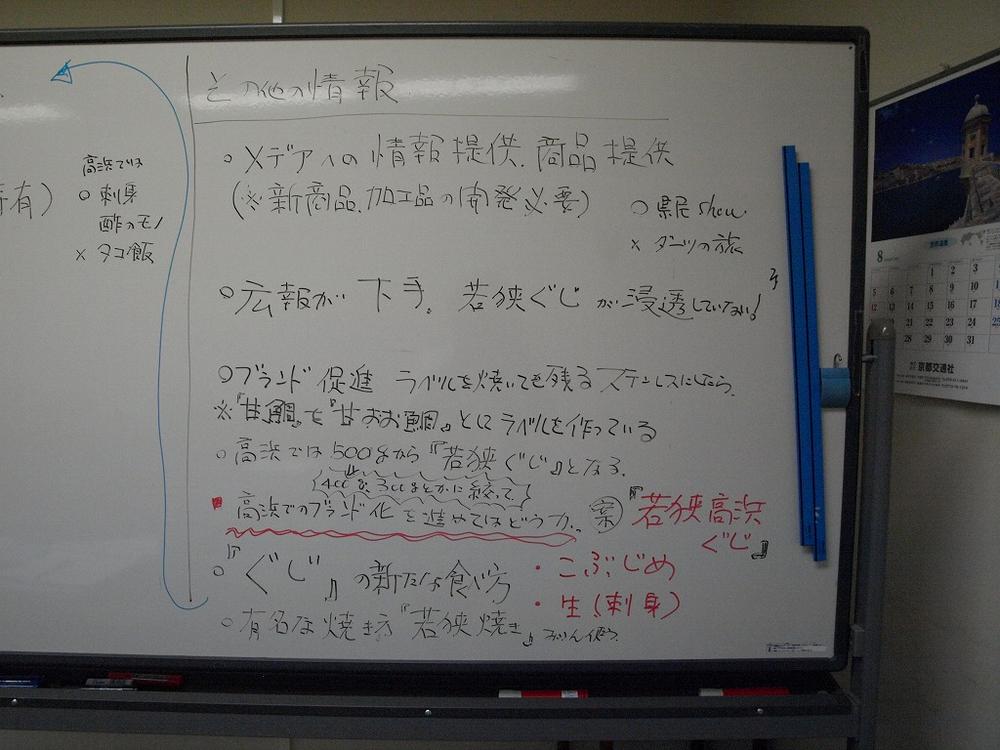 有)
高浜では
○ 刺身
酢のモノ
× タコ飯
その他の情報
○ メデアへの情報提供、商品提供
(※新商品、加工品の開発必要)
○ 県民show
× ダーツの旅
○ 広報が下手。若狭ぐじが浸透していない!
○ ブランド促進 ラベルを焼いても残るステンレスにしたら。
※『甘鯛』を『甘おお鯛』としてラベルを作っている
○ 高浜では500gから『若狭ぐじ』となる。
高浜でのブランド化を進めてはどうか。
案『若狭高浜
ぐじ』
○『ぐじ』の新たな食べ方
・こぶじめ
・生(刺身)
○ 有名な焼き方『若狭焼き』
8
1 2 3
5 7 8 9 10
12 14 15 16 17
21 22 23 24
28 29 30 31
京都交通社